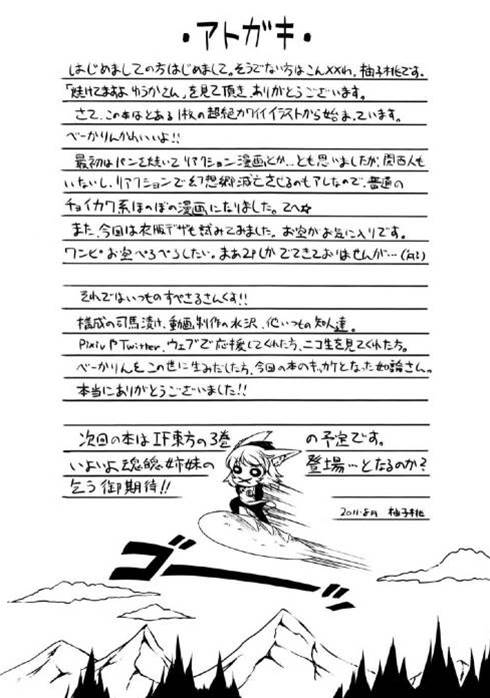 ・アトガキ・
はじめましての方はじめまして。そうでない方はこんxxわ、柚子桃です。
「焼けてますよゆうかさん」を見て頂き、ありがとうございます。
さて、この本はとある1枚の超絶カワイイイラストから始まっています。
べーかりんかわいいよ!!
最初はパンを焼いてリアクション漫画とか…とも思いましたが、関西人も
いないし、リアクションで幻想郷滅亡させるのもアレなので、普通の
チョイカワ系ほのぼの漫画になりました。てへ☆
また、今回は衣服デザも試みてみました。お空がお気に入りです。
ワンピお空ぺろぺろしたい。まぁ2Pしかでてきておりませんが…
それではいつものすぺさるさんくす!!
構成の司馬漬け、動画制作の水沢、他いつもの知人達。
PixivやTwitter、ウェブで応援してくれた方、ニコ生を見てくれた方。
べーかりんをこの世に生みだした方、今回の本のキッカケとなった如諭さん。
本当にありがとうございました!!
次回の本はIF東方の3巻の予定です。
いよいよ姉妹の登場…となるのか?
乞う御期待!!
2011.8月 柚子桃
ゴーッ